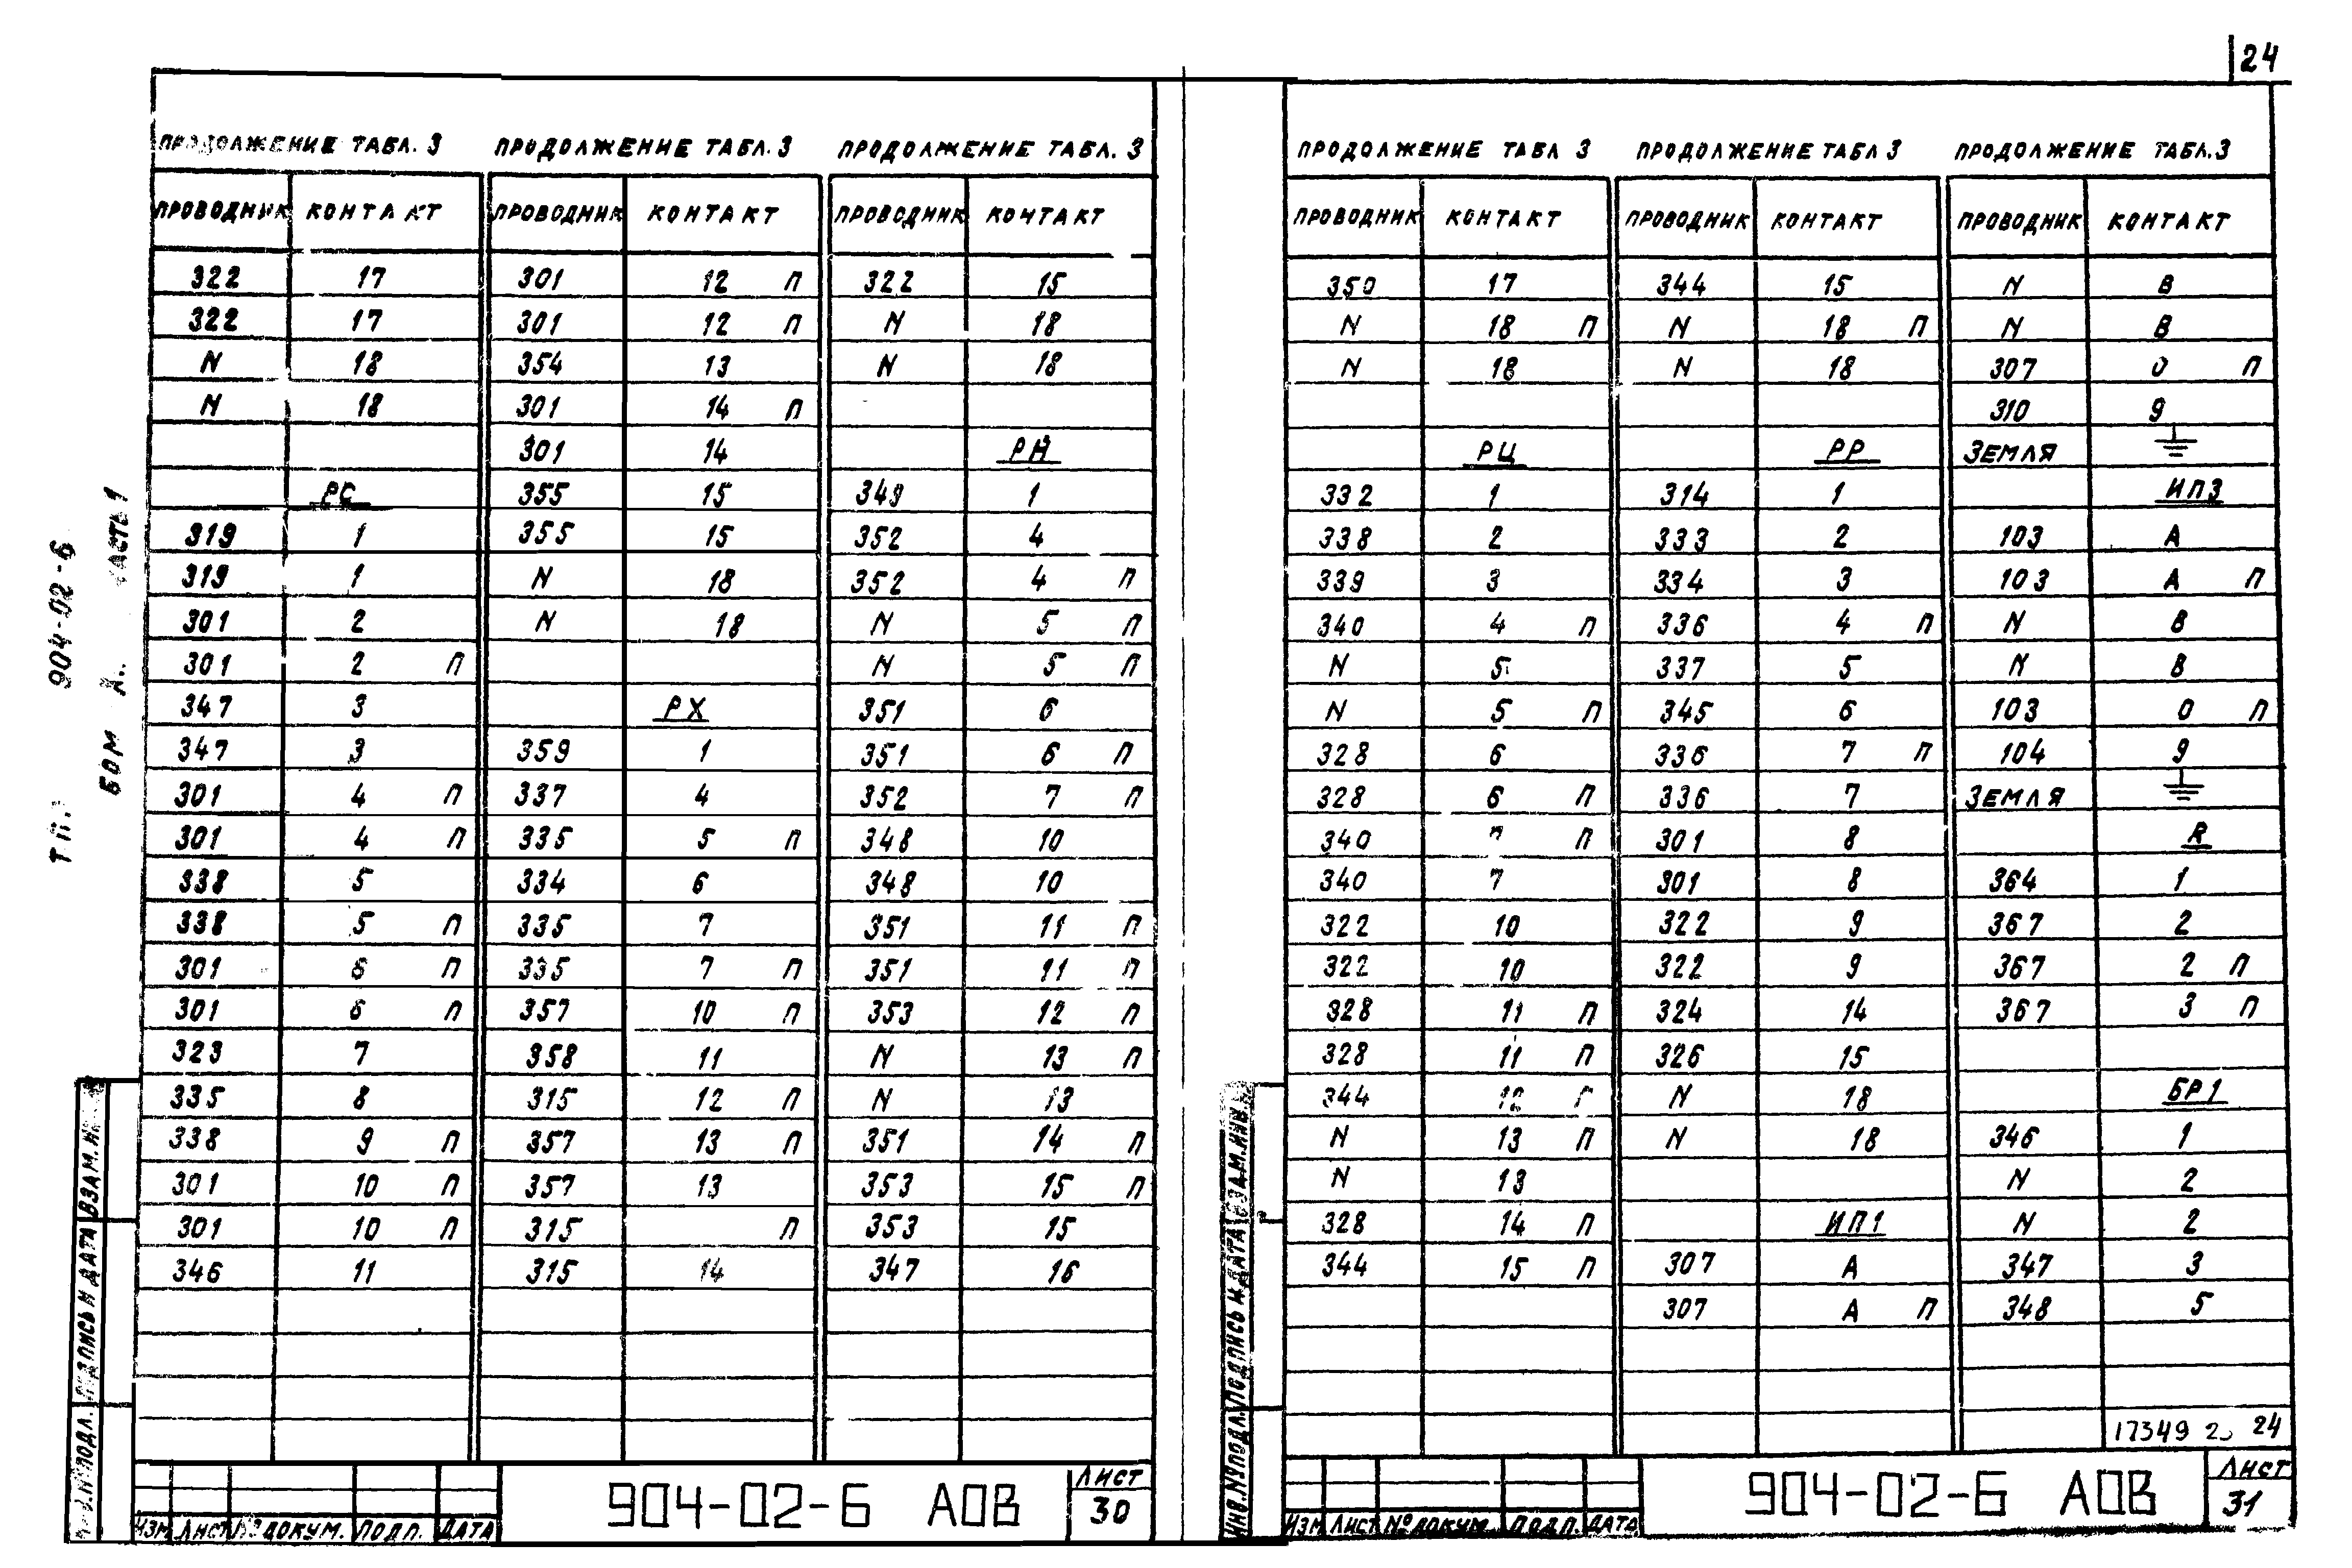 24
ПРОДОЛЖЕНИЕ ТАБЛ. 3
ПРОВОДНИК КОНТАКТ
322 17
322 17
N 18
N 18
РС
319 1
319 1
301 2
301 2 П
347 3
347 3
301 4 П
301 4 П
338 5
338 5 П
301 6 П
301 6 П
323 7
335 8
338 9 П
301 10 П
301 10 П
346 11
ПРОДОЛЖЕНИЕ ТАБЛ. 3
ПРОВОДНИК КОНТАКТ
301 12 П
301 12 П
354 13
301 14 П
301 14
355 15
355 15
N 18
N 18
РХ
359 1
337 4
335 5 П
334 6
335 7
335 7 П
357 10 П
358 11
315 12 П
357 13 П
357 13
315 П
315 14
ПРОДОЛЖЕНИЕ ТАБЛ. 3
ПРОВОДНИК КОНТАКТ
322 15
N 18
N 18
РН
349 1
352 4
352 4 П
N 5 П
N 5 П
351 6
351 6 П
352 7 П
348 10
348 10
351 11 П
351 11 П
353 12 П
N 13 П
N 13
351 14 П
353 15 П
353 15
347 16
904-02-6 АОВ
ЛИСТ
30
ИЗМ ЛИСТ № ДОКУМ. ПОДП. ДАТА
Т.П. 904-02-6
ВЗАМ.
ПОДПИСЬ И ДАТА
ПОДЛ.
ПРОДОЛЖЕНИЕ ТАБЛ 3
ПРОВОДНИК КОНТАКТ
350 17
N 18 П
N 18
РЦ
332 1
338 2
339 3
340 4 П
N 5
N 5 П
328 6
328 6 П
340 7 П
340 7
322 10
322 10
328 11 П
328 11 П
344 12 П
N 13 П
N 13
328 14 П
344 15 П
ПРОДОЛЖЕНИЕ ТАБЛ 3
ПРОВОДНИК КОНТАКТ
344 15
N 18 П
N 18
РР
314 1
333 2
334 3
336 4 П
337 5
345 6
336 7 П
336 7
301 8
301 8
322 9
322 9
324 14
326 15
N 18
N 18
ИП1
307 А
307 А П
ПРОДОЛЖЕНИЕ ТАБЛ. 3
ПРОВОДНИК КОНТАКТ
N В
N В
307 0 П
310 9
ЗЕМЛЯ
ИП3
103 А
103 А П
N В
N В
103 0 П
104 9
ЗЕМЛЯ
R
364 1
367 2
367 2 П
367 3 П
БР1
346 1
N 2
N 2
347 3
348 5
17349 24
904-02-6 АОВ
ЛИСТ
31
ИЗМ ЛИСТ № ДОКУМ. ПОДП. ДАТА
ИНВ.№ПОДЛ.
ПОДПИСЬ И ДАТА
ВЗАМ.ИНВ.